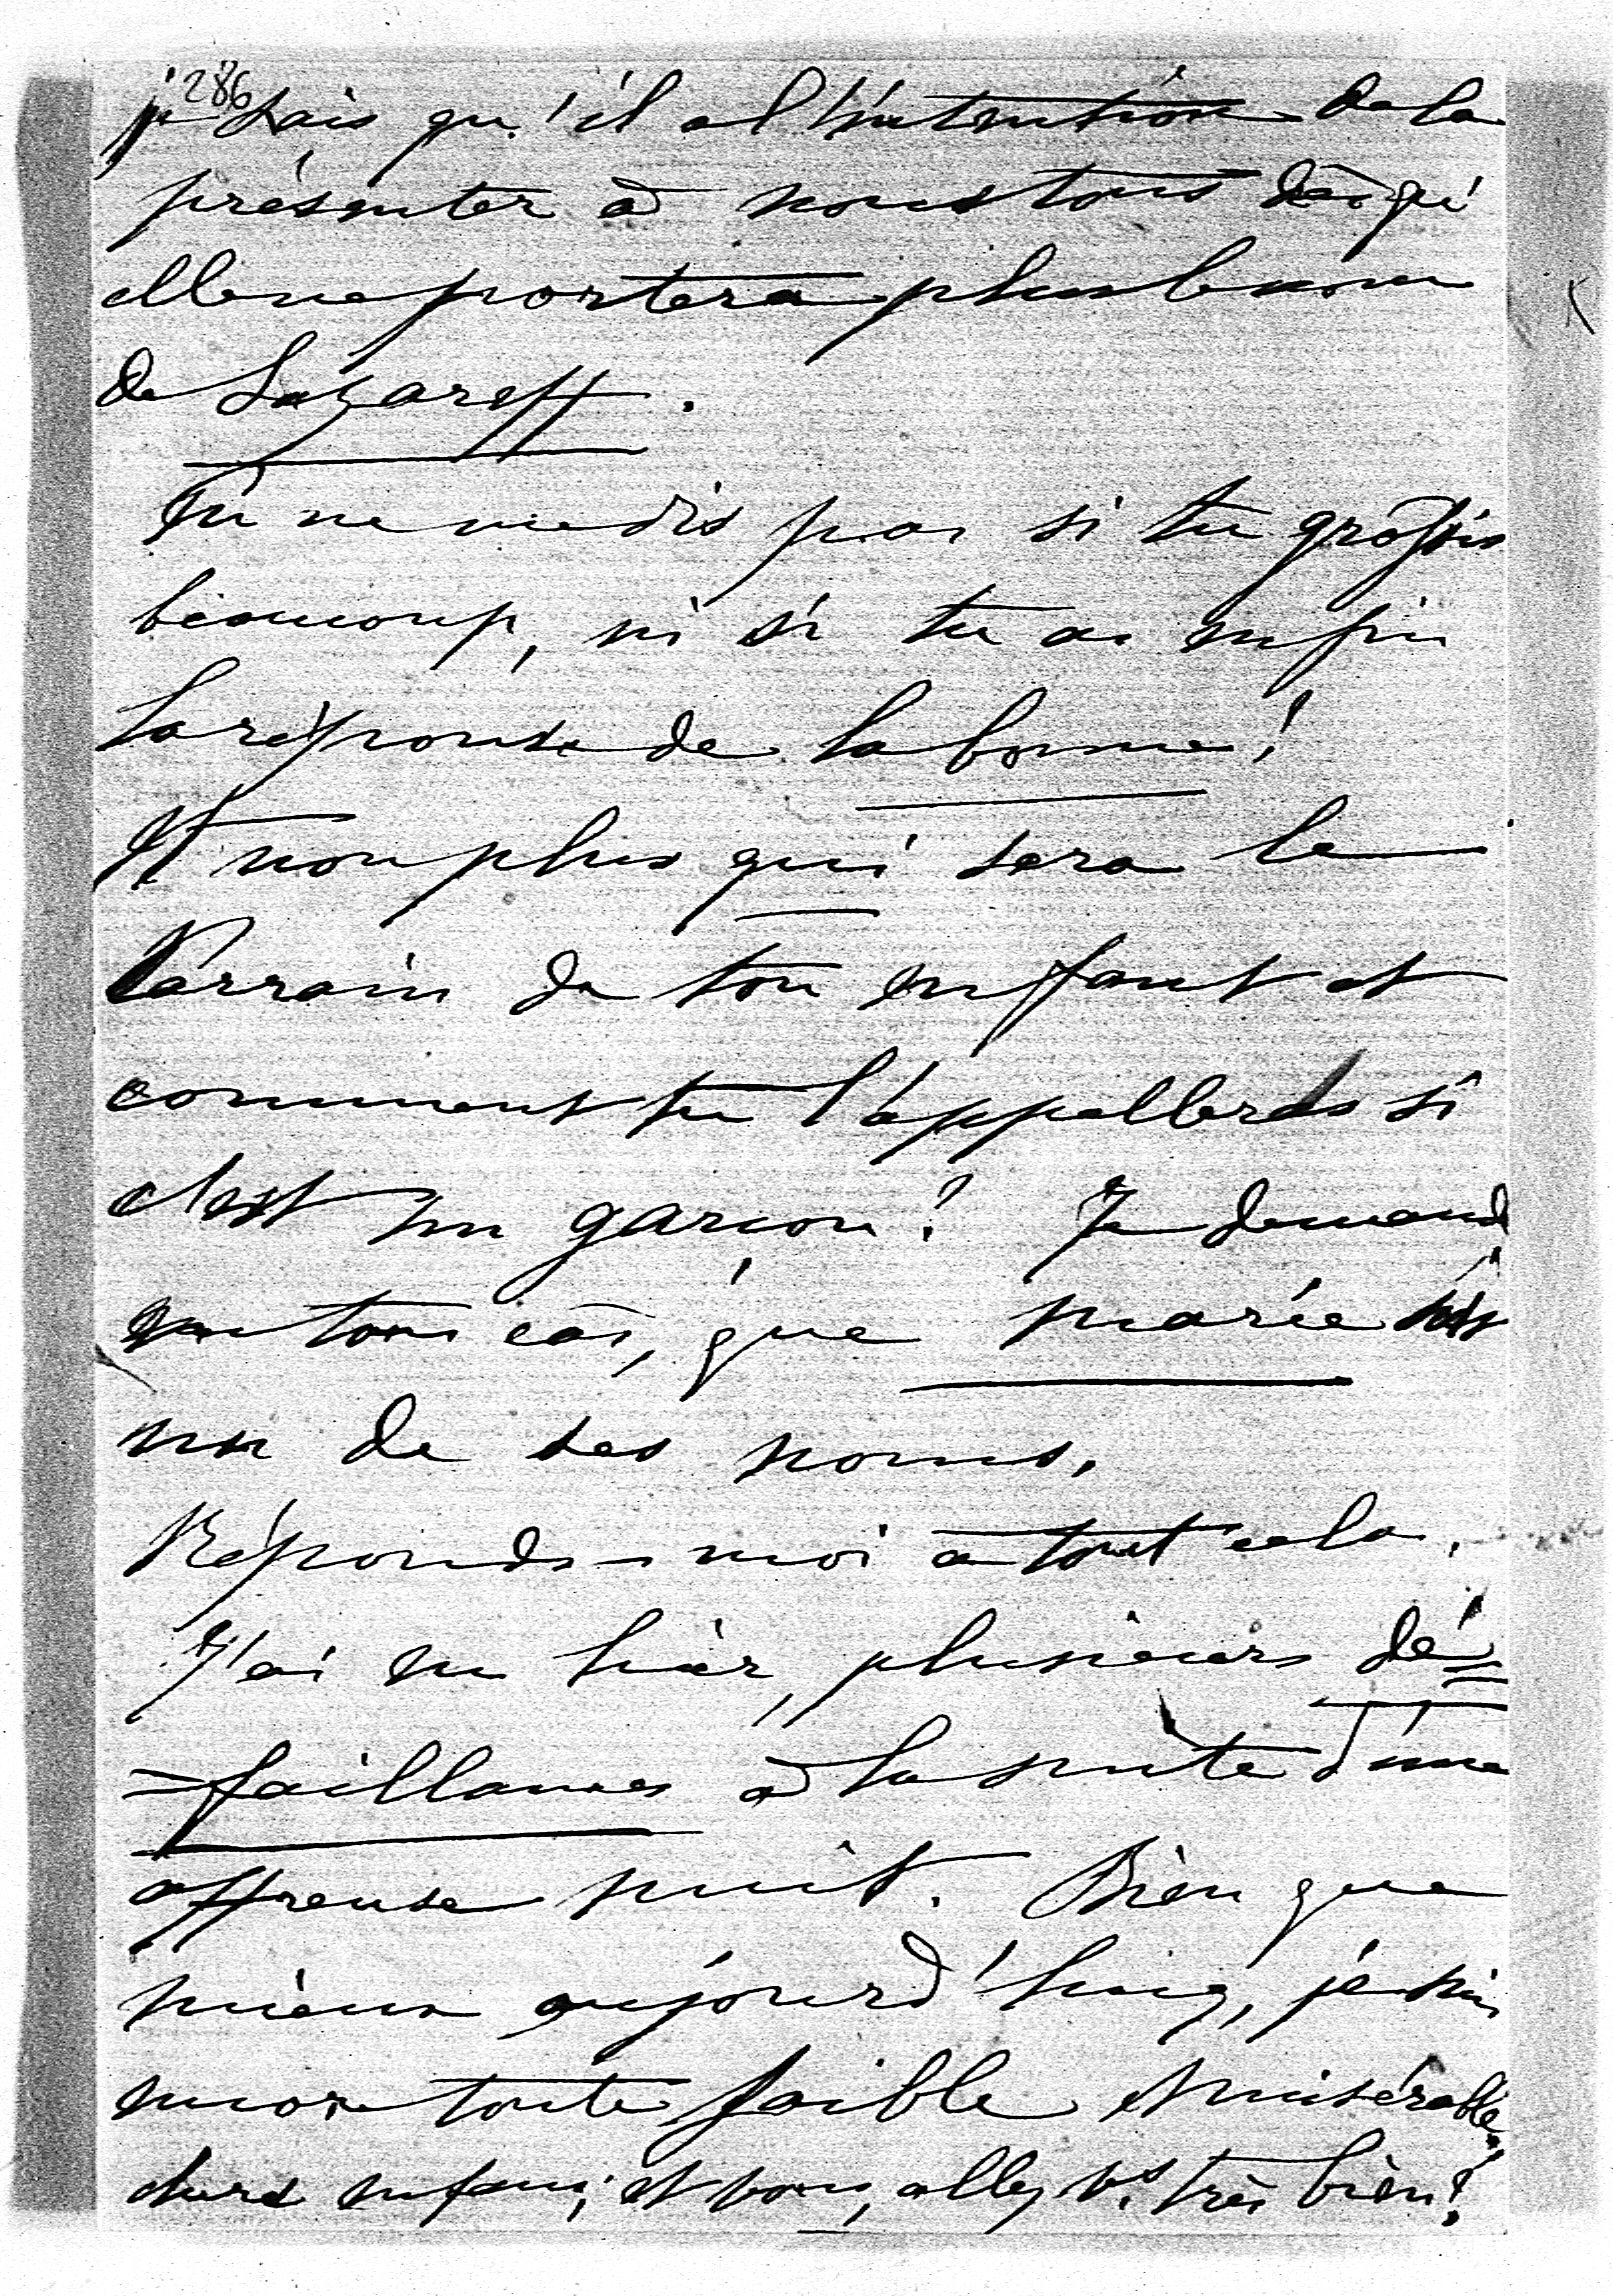 286
je sais qu'il a l'intention de la
présenter à nous tous dès qu'
elle ne portera plus le nom
de Lazareff.
Tu ne me dis pas si tu grossis
beaucoup, ni si tu as enfin
la réponse de la bonne!
Et non plus qui sera le
Parrain de ton enfant et
comment tu l'appelleras si
c'est un garçon? Je demande
en tous cas, que Marie soit
un de ses noms.
Réponds-moi a tout cela.
J'ai eu hier, plusieurs dé=
=faillances à la suite d'une
affreuse nuit. Bien que
mieux aujourd'hui, je suis
encore toute faible et misérable,
chers enfans; et vous, allez vs très bien?